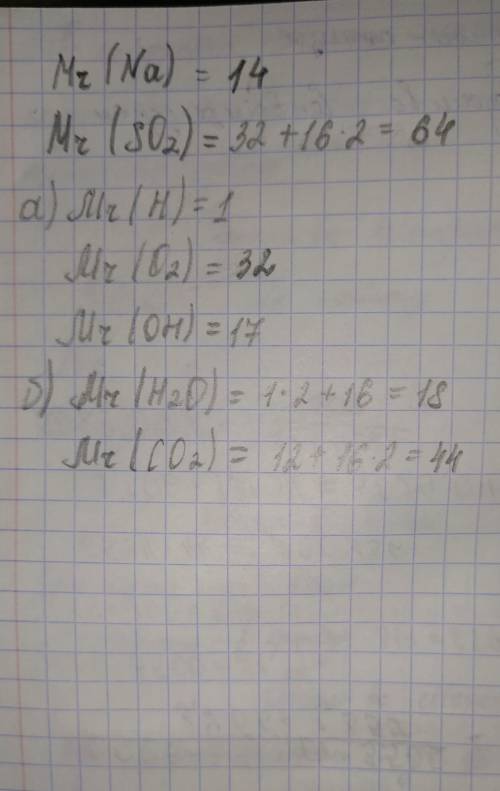 Mr (Na) = 14
Mr (SO₂) = 32 + 16·2 = 64
а) Mr (H) = 1
Mr (O₂) = 32
Mr (OH) = 17
б) Mr (H₂O) = 1·2 + 16 = 18
Mr (CO₂) = 12 + 16·2 = 44